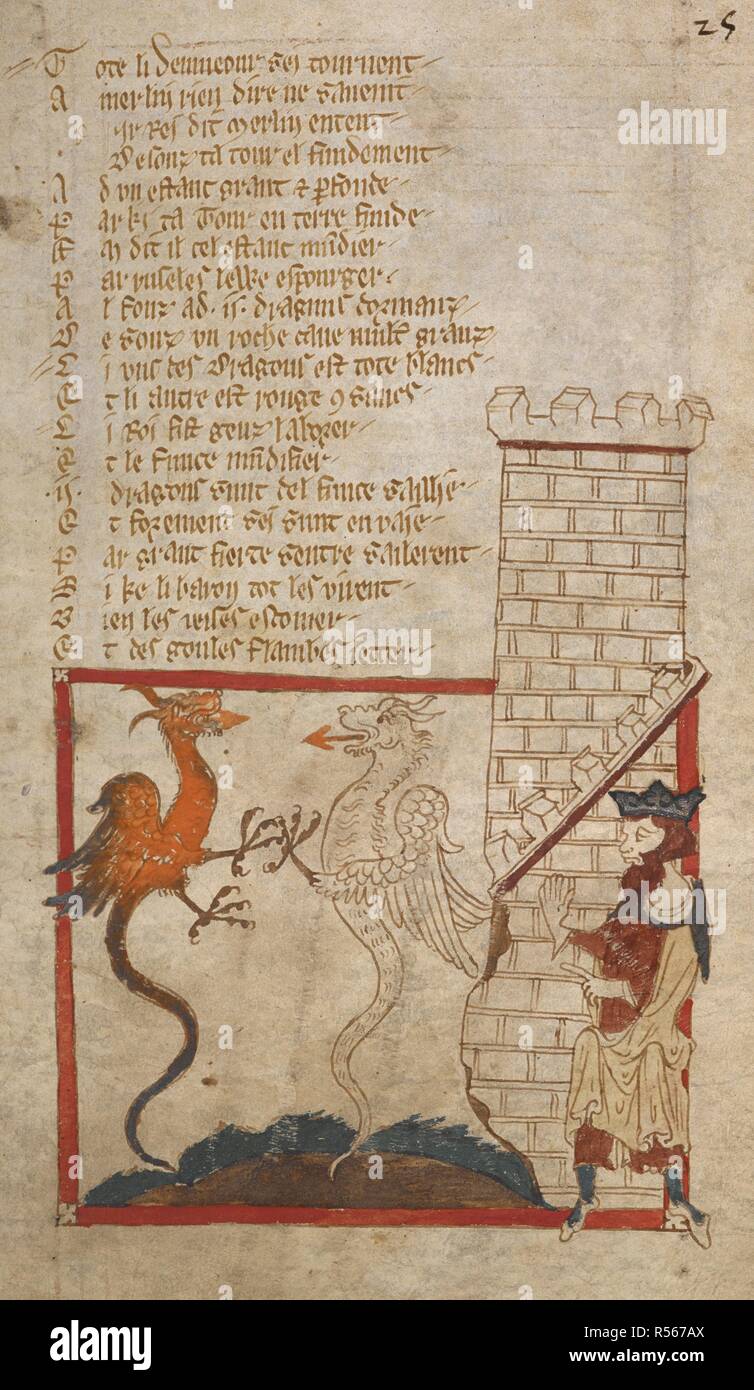 25
Tote li devineour sei tournent
A merlin rien dire ne savent
Sir Rei dit Merlin entent
Desouz ta tour el fundement
Ad un estanc grant & pfonde
Par ki ta Tour en terre funde
dit il cel estanc mūdier
Par ruseles lewe espourger
Al founz ad .ii. draguns dormanz
De souz un roche cave mult granz
Li uns des Dragons est tote blancs
Et li autre est rouge 9 sancs
Li Roi fist genz laborer
Et le funce mūdifier
.ii. dragons sunt del funce saillie
Et forement sei sunt envaie
Par grant fierte sentre sailerent
Si ke li baron tot les virent
Bien les escomer
Et des goules flambes jetter
alamy
alamy
Image ID: R567AX
www.alamy.com